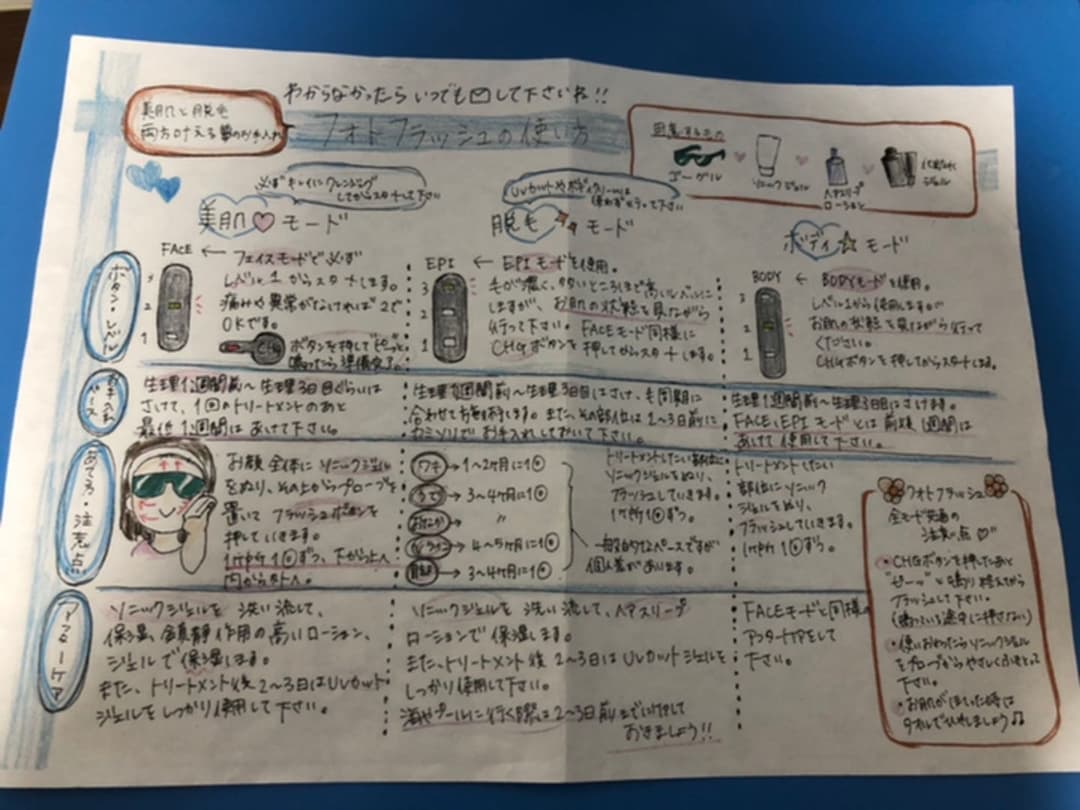 わからなかったら いつでも✉して下さいね!!
美肌と脱毛
両方叶える夢のお手入れ
フォトフラッシュの使い方
用意するもの
ゴーグル
ソニックジェル
ヘアスリープ
ローション
ジェル
必ずキレイにクレンジング
してからスタートして下さい
美肌♡モード
FACE ← フェイスモードで必ず
レベル1からスタートします。
痛みや異常がなければ2で
OKです。
3
2
1
CHG
ボタンを押して"ピーッ"と
鳴ったら準備完了。
UVカットやボディクリームは
使わず行って下さい
脱毛モード
EPI ← EPIモードを使用。
毛が濃く、多いところほど高いレベルに
しますが、お肌の状態を見ながら
行って下さい。FACEモード同様に
CHGボタンを押してからスタートします。
3
2
1
ボディ☆モード
BODY ← BODYモードを使用。
レベル1から使用しますが
お肌の状態を見ながら行って
ください。
CHGボタンを押してからスタートします。
3
2
1
ボタン・レベル
お手入れ
ペース
生理1週間前〜生理3日目ぐらいは
さけて、1回のトリートメントのあと
最低1週間はあけて下さい。
生理1週間前〜生理3日目はさけ、毛周期に
合わせてお手入れします。また、その部位は2〜3日前に
カミソリでお手入れしておいて下さい。
生理1週間前〜生理3日目はさけます。
FACE、EPIモードとは前後1週間は
あけて使用して下さい。
あて方・注意点
お顔全体にソニックジェル
をぬり、その上からプローブを
置いてフラッシュボタンを
押していきます。
1ヶ所1回ずつ、下から上へ
内から外へ。
ワキ→1〜2ヶ月に1回
うで→3〜4ヶ月に1回
→ 〃
→4〜5ヶ月に1回
→3〜4ヶ月に1回
トリートメントしたい部位に
ソニックジェルをぬり、
フラッシュしていきます。
1ヶ所1回ずつ。
一般的なペースですが
個人差があります。
トリートメントしたい
部位にソニック
ジェルをぬり、
フラッシュしていきます。
1ヶ所1回ずつ。
アフターケア
ソニックジェルを洗い流して、
保湿、鎮静作用の高いローション、
ジェルで保湿します。
また、トリートメント後2〜3日はUVカット
ジェルをしっかり使用して下さい。
ソニックジェルを洗い流して、ヘアスリープ
ローションで保湿します。
また、トリートメント後2〜3日はUVカットジェルを
しっかり使用して下さい。
海やプールに行く際は2〜3日前までに行って
おきましょう!!
FACEモードと同様
アフターケアをして
下さい。
フォトフラッシュ
全モード共通の
注意の点♡
・CHGボタンを押したあと
"ピーッ"と鳴り終えてから
フラッシュして下さい。
(鳴っている途中に押さない)
・使いおわったらソニックジェル
をプローブからやさしくふきとって
下さい。
・お肌がほてった時は
タオルで冷やしましょう♫